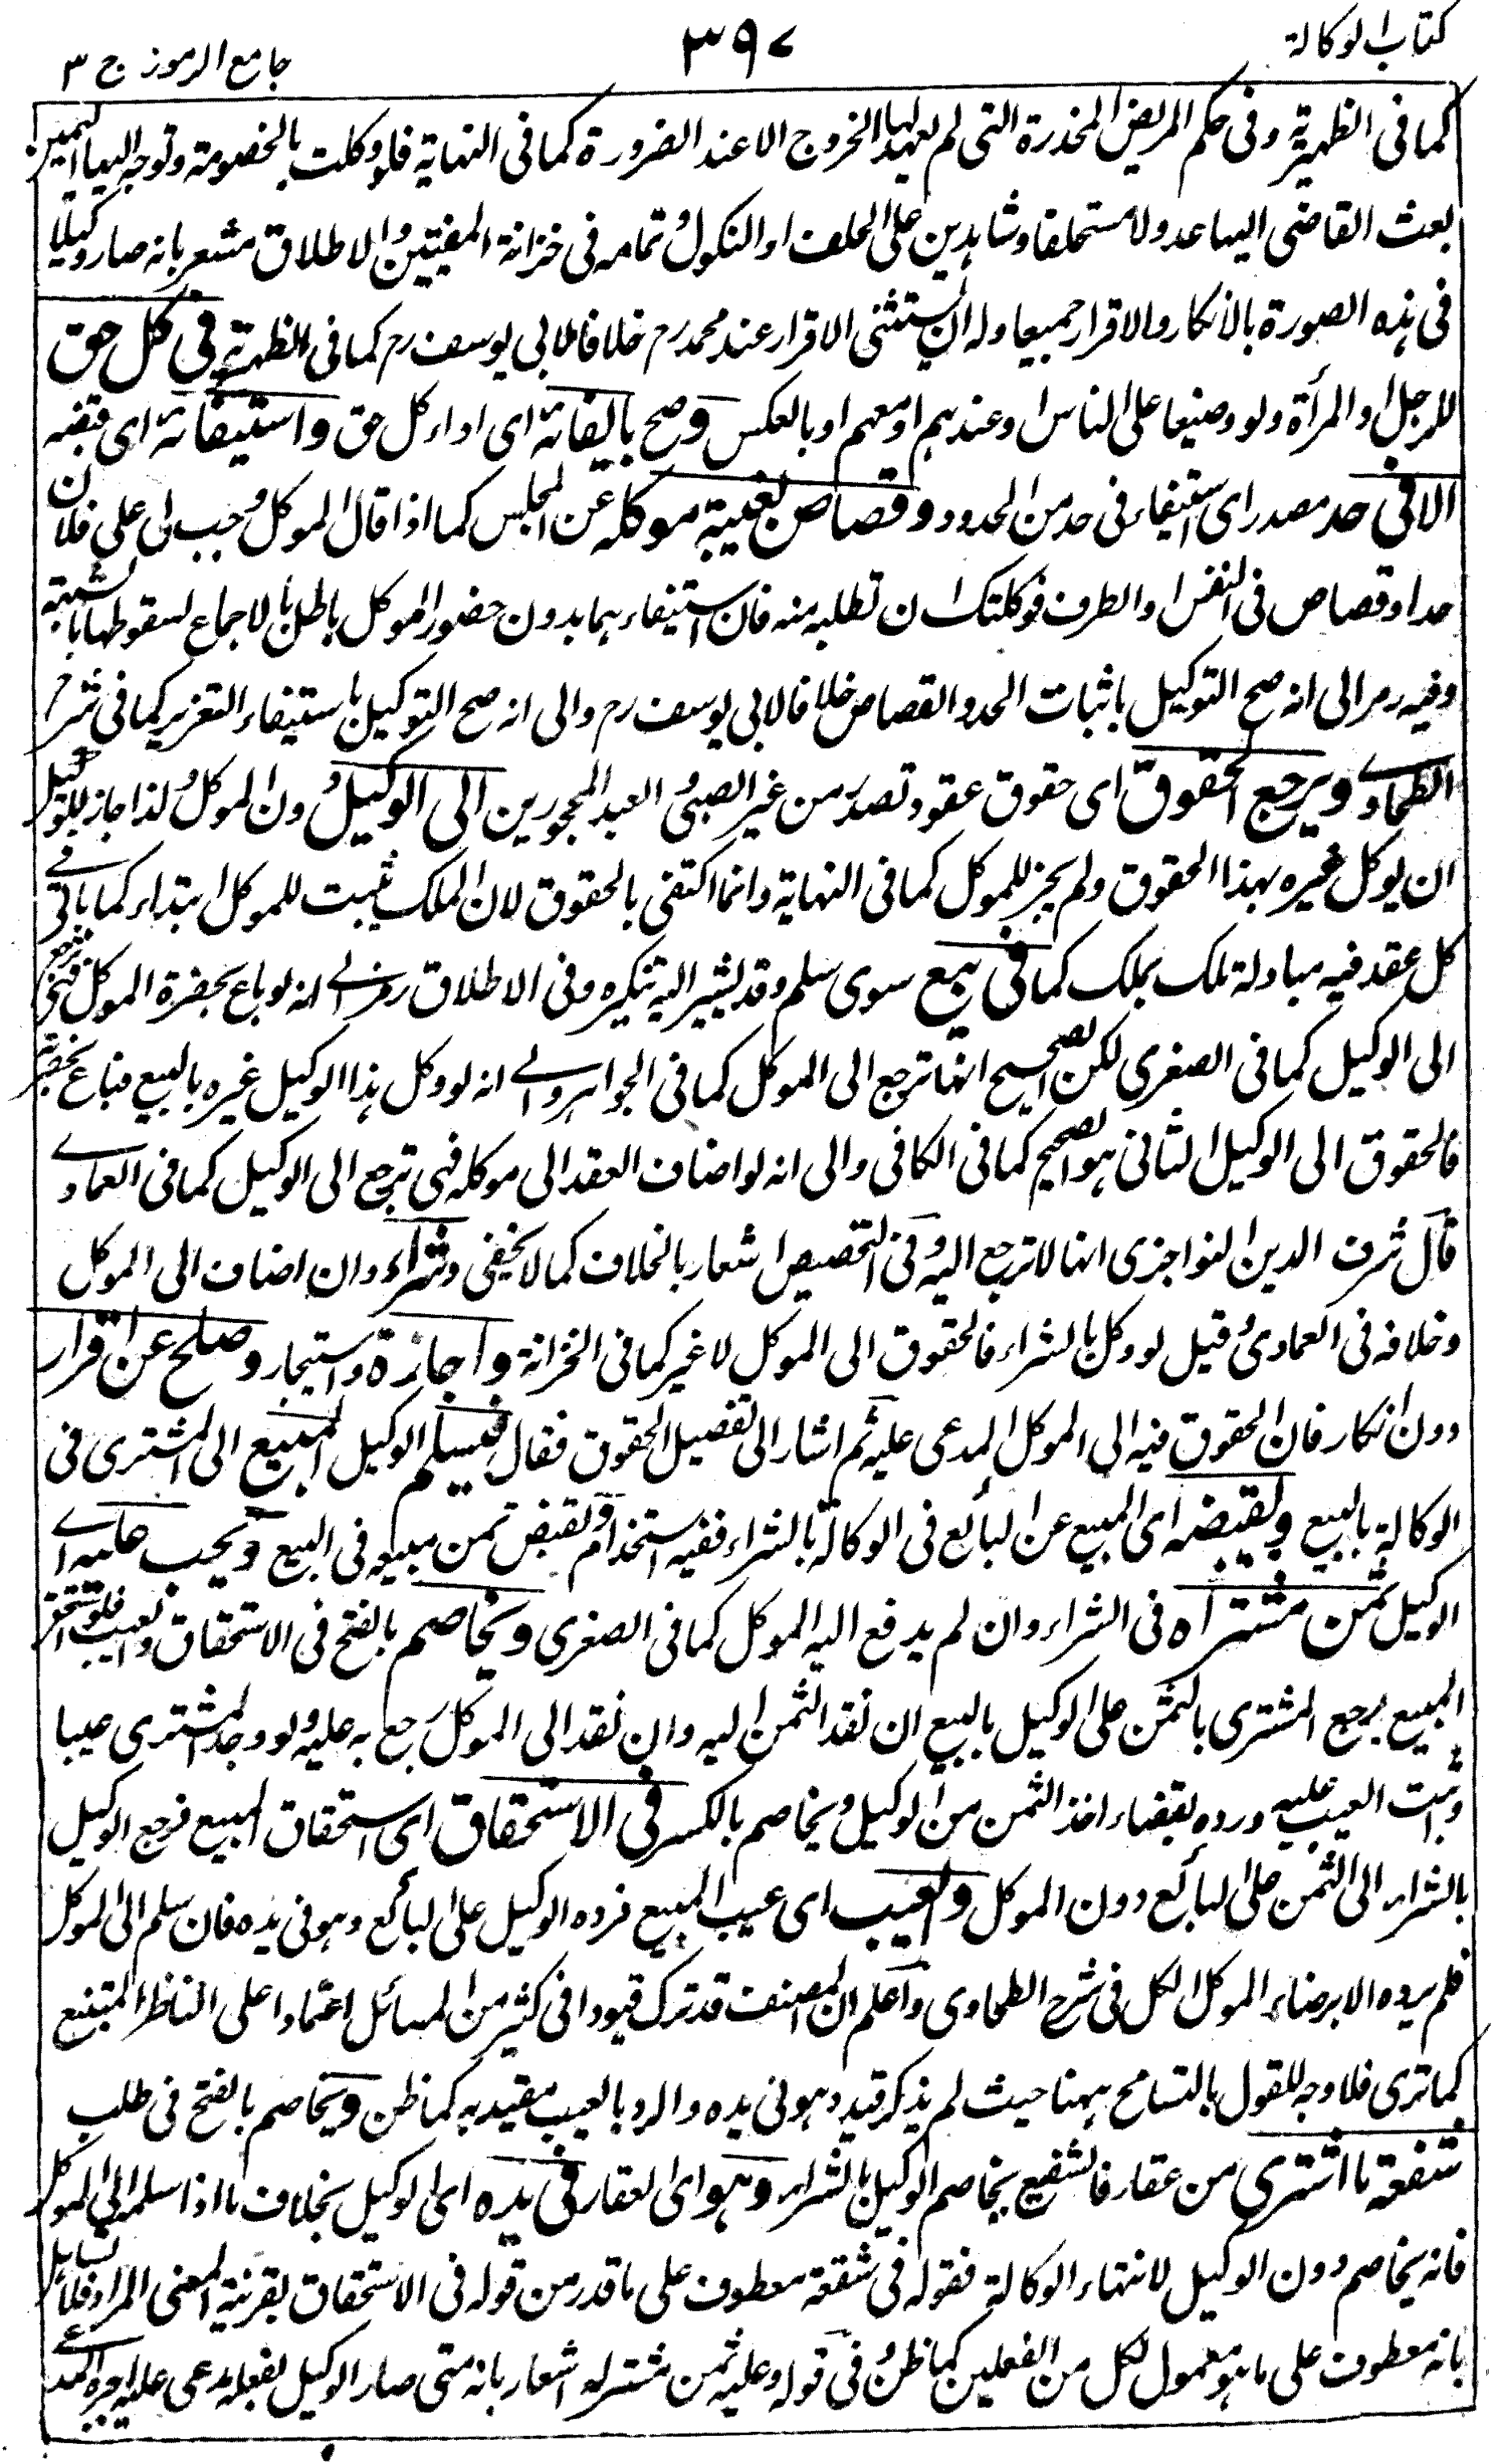 كتاب الوكالة
٣٩٧
جامع الرموز ج ٣
كما فى الظهيرية وفى حكم المريض المخدرة التى لم يعهد لها الخروج الا عند الضرورة كما فى النهاية فلو وكلت بالخصومة وتوجه اليها اليمين
بعث القاضى اليها عدولا مستحلفا وشاهدين على الحلف او النكول وتمامه فى خزانة المفتين والاطلاق مشعر بانه صار وكيلا
فى هذه الصورة بالانكار والاقرار جميعا وله ان يستثنى الاقرار عند محمد رح خلافا لابى يوسف رح كما فى الظهيرية فى كل حق
للرجل او المرأة ولو وضيعا على الناس او عندهم او معهم او بالعكس وصح بايفائه اى اداء كل حق واستيفائه اى قبضه
الا فى حد مصدر اى استيفاء فى حد من الحدود وقصاص بغيبة موكله عن المجلس كما اذا قال الموكل وجب لى على فلان
حد او قصاص فى النفس او الطرف فوكلتك ان تطلبه منه فان استيفاءهما بدون حضور الموكل باطل بالاجماع لسقوطها بالشبهة
وفيه رمز الى انه صح التوكيل باثبات الحد والقصاص خلافا لابى يوسف رح والى انه صح التوكيل باستيفاء التعزير كما فى شرح
الطحاوے ويرجع الحقوق اى حقوق عقود تصدر من غير الصبى والعبد المحجورين الى الوكيل دون الموكل ولذا جاز للوكيل
ان يوكل غيره بهذا الحقوق ولم يجز للموكل كما فى النهاية وانما اكتفى بالحقوق لان الملك يثبت للموكل ابتداء كما ياتى فے
كل عقد فيه مبادلة ملك بملك كما فى بيع سوى سلم وقد يشير اليه تنكيره وفى الاطلاق رمز الے انه لو باع بحضرة الموكل فهى ترجع
الى الوكيل كما فى الصغرى لكن الصحيح انها ترجع الى الموكل كما فى الجواهر والے انه لو وكل هذا الوكيل غيره بالبيع فباع بحضرته
فالحقوق الى الوكيل الثانى هو الصحيح كما فى الكافى والى انه لو اضاف العقد الى موكله فهى ترجع الى الوكيل كما فى العمادے
قال شرف الدين النواجزى انها لا ترجع اليه وفى التخصيص اشعار بالخلاف كما لا يخفى وشراء وان اضاف الى الموكل
وخلافه فى العمادى وقيل لو وكل بالشراء فالحقوق الى الموكل لا غير كما فى الخزانة واجازة واستيجار وصلح عن اقرار
دون انكار فان الحقوق فيه الى الموكل المدعى عليه ثم اشار الى تفصيل الحقوق فقال فيسلم الوكيل المبيع الى المشترى فى
الوكالة بالبيع ويقبضه اى المبيع عن البائع فى الوكالة بالشراء ففيه استخدام ويقبض ثمن مبيعه فى البيع ويجب عليه اے
الوكيل ثمن مشتراه فى الشراء وان لم يدفع اليه الموكل كما فى الصغرى ويخاصم بالفتح فى الاستحقاق والعيب فلو استحق
المبيع يرجع المشترى بالثمن على الوكيل بالبيع ان نقد الثمن اليه وان نقد الى الموكل رجع به عليه ولو وجد المشترى عيبا
واثبت العيب عليه ورده بقضاء اخذ الثمن من الوكيل ويخاصم بالكسر فى الاستحقاق اى استحقاق المبيع فرجع الوكيل
بالشراء الى الثمن على البائع دون الموكل والعيب اى عيب المبيع فرده الوكيل على البائع وهو فى يده فان سلم الى الموكل
فلم يرده الا برضاء الموكل الكل فى شرح الطحاوى واعلم ان المصنف قد ترك قيودا فى كثير من المسائل اعتمادا على الناظر المتتبع
كما ترى فلا وجه للقول بالتسامح ههنا حيث لم يذكر قيد وهو فى يده والرد بالعيب مقيد به كما ظن ويخاصم بالفتح فى طلب
شفعة ما اشترى من عقار فالشفيع يخاصم الوكيل بالشراء وهو اى العقار فى يده اى الوكيل بخلاف ما اذا سلمه الى الموكل
فانه يخاصم دون الوكيل لانتهاء الوكالة فقوله فى شفعة معطوف على ما قدر من قوله فى الاستحقاق بقرينة المعنى المراد فلا
بانه معطوف على ما هو معمول لكل من الفعلين كما ظن وفى قوله وعليه ثمن مشتراه اشعار بانه متى صار الوكيل بفعله مدعى عليه